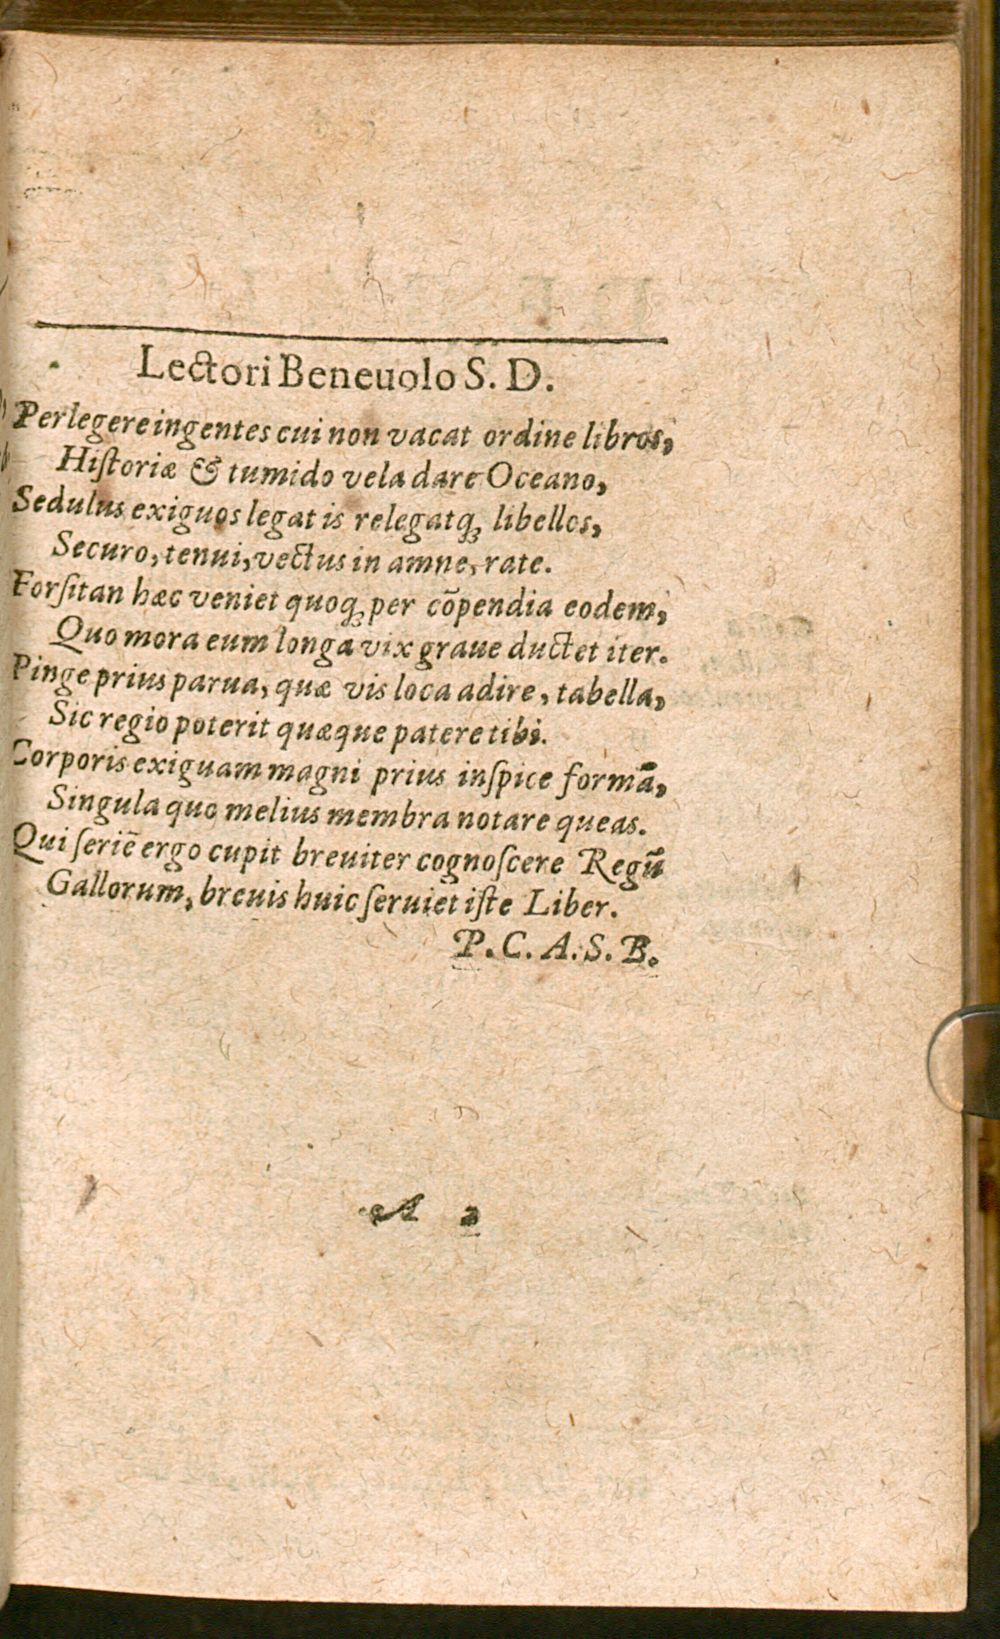 Lectori Beneuolo S. D.
Perlegere ingentes cui non vacat ordine libros,
Hiſtoriæ & tumido vela dare Oceano,
Sedulus exiguos legat is relegatq; libellos,
Securo, tenui, vectus in amne, rate.
Forſitan hæc veniet quoq; per cõpendia eodem,
Quo mora eum longa vix graue ductet iter.
Pinge prius parua, quæ vis loca adire, tabella,
Sic regio poterit quæque patere tibi.
Corporis exiguam magni prius inſpice formā,
Singula quo melius membra notare queas.
Qui ſeriē ergo cupit breuiter cognoſcere Regū
Gallorum, breuis huic ſeruiet iſte Liber.
P. C. A. S. B.
A 2